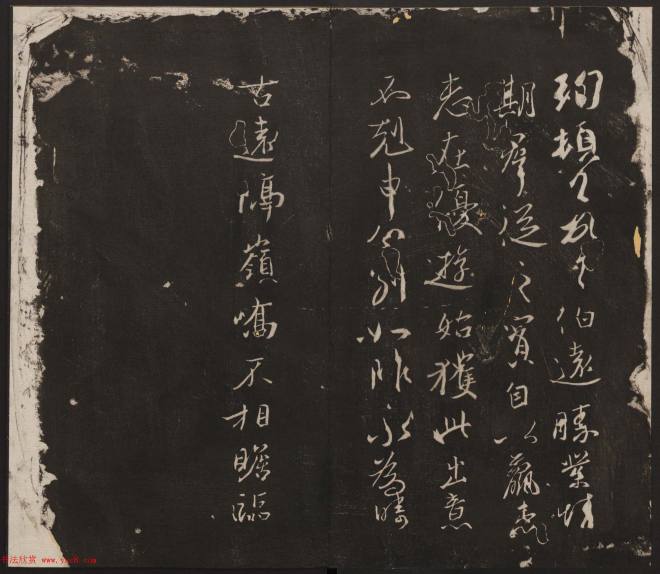 珣頓首頓首伯遠勝業情
期羣從之寶自以羸患
志在優遊始獲此出意
不剋申分別如昨永為疇
古遠隔嶺嶠不相瞻臨
书法欣赏 www.yac8.com